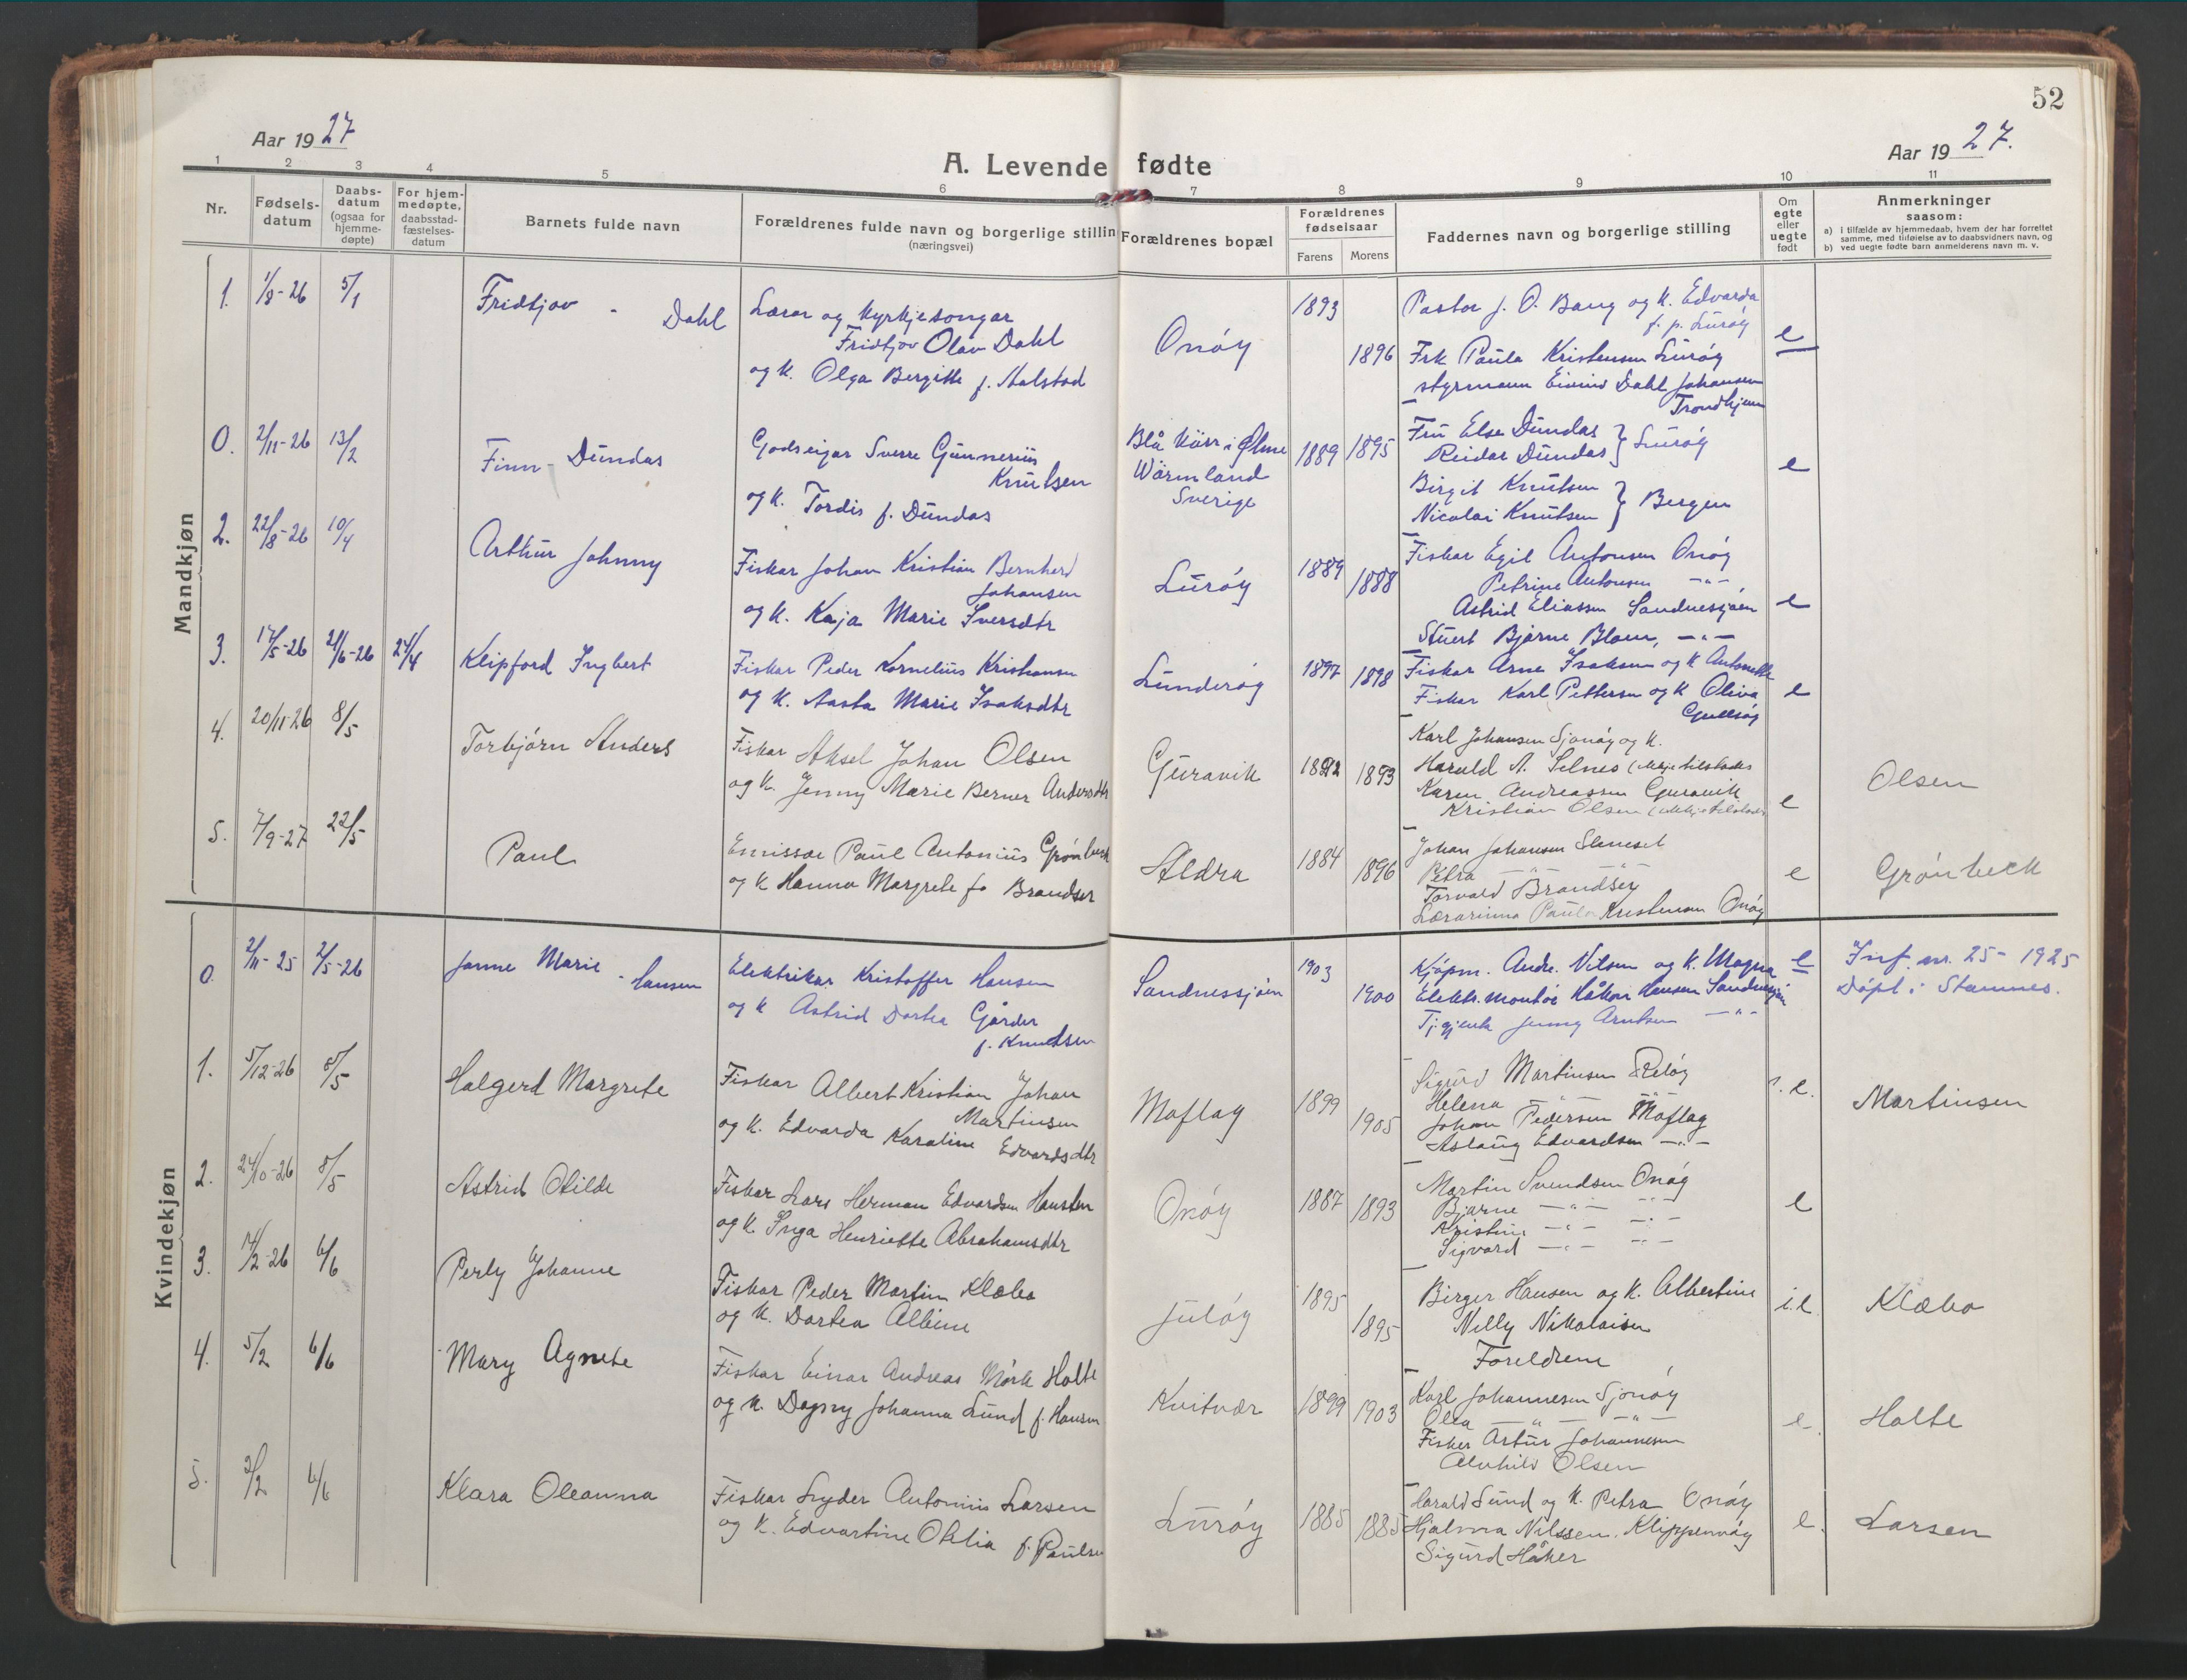 52
Aar 1927
Aar 1927.
A. Levende fødte
1 2 3 4 5 6 7 8 9 10 11
Nr.
Fødsels-
datum
Daabs-
datum
(ogsaa for
hjemme-
døpte)
For hjem-
medøpte,
daabsstad-
fæstelses-
datum
Barnets fulde navn
Forældrenes fulde navn og borgerlige stillin
(næringsvei)
Forældrenes bopæl
Forældrenes
fødselsaar
Farens
Morens
Faddernes navn og borgerlige stilling
Om
egte
eller
uegte
født
Anmerkninger
saasom:
a) i tilfælde av hjemmedaab, hvem der har forrettet
samme, med tilføielse av to daabsvidners navn, og
b) ved uegte fødte barn anmelderens navn m. v.
Mandkjøn
1. 1/8-26 5/1
Fridtjov - Dahl
Lærar og kyrkjesongar
Fridtjov Olav Dahl
og k. Olga Bergitte f. Aalstad
Onøy
1893
1896
Pastor J. O. Bang og k. Edvarda
f. p. Lurøy
Frk Paula Kristensen Lurøy
styrmann Eivind Dahl Johansen
Trondhjem
e
0. 2/11-26 13/2
Finn - Dundas
Godseigar Sverre Gunnerius
Knutsen
og k. Tordis f. Dundas
Blå Kärr i Ølme
Wärmland
Sverige
1889 1895
Fru Else Dundas
Reidar Dundas } Lurøy
Birgit Knutsen
Nicolai Knutsen } Bergen
e
2. 22/8-26 10/4
Arthur Johnny
Fiskar Johan Kristian Bernhard
Johansen
og k. Kaja Marie Iversdtr
Lurøy
1889
1888
Fiskar Egil Antonsen Onøy
Petrine Antonsen -"-
Astrid Eliassen Sandnessjøen
Stuert Bjarne Blom, -"-
e
3. 17/5-26 21/6-26 24/4
Klipford Ingbert
Fiskar Peder Kornelius Kristiansen
og k. Aasta Marie Isaksdtr
Lunderøy
1897 1898
Fiskar Arne Isaksen og k Antonette
Fiskar Karl Pettersen og k Oliva
e
4. 20/11-26 8/5
Torbjørn Anders
Fiskar Aksel Johan Olsen
og k. Jenny Marie Berner Andersdtr
Guravik
1892 1893
Karl Johansen Sjonøy og k.
Harald A. Selnes (ikkje tilstades
Karen Andreassen Guravik
Kristian Olsen (ikkje tilstades
e
Olsen
5. 7/9-27 22/5
Paul
Emissær Paul Antonius Grønbeck
og k Hanna Margrete f. Brandser
Aldra
1884 1896
Johan Johansen Slaneset
Petra -"-
Torvald Brandsøy
Lærarinna Paula Kristensen Onøy
e
Grønbeck
Kvindekjøn
0. 2/11-25 2/5-26
Janne Marie - Hansen
Elektrikar Kristoffer Hansen
og k Astrid Dortea Gårder
f. Knudsen
Sandnessjøen
1903
1900
Kjøpm. Andr. Nilsen og k. Magna
Elektr. montør Håkon Hansen Sandnessjøen
Tj.gjenta Jenny Arntsen -"-
e
Inf. nr. 25 - 1925
Døpt i Stamnes.
1. 5/12-26 8/5
Halgerd Margrete
Fiskar Albert Kristian Johan
Martinsen
og k. Edvarda Karoline Edvardsdtr
Moflag
1899
1905
Sigurd Martinsen Reløy
Helena -"- -"-
Johan Pedersen Moflag
Aslaug Edvardsen -"-
e.
Martinsen
2. 24/10-26 8/5
Astrid Otilde
Fiskar Lars Herman Edvardsen Hansten
og k. Inga Henriette Abrahamsdtr
Onøy
1887 1893
Martin Svendsen Onøy
Bjarne -"- -"-
Kristine -"- -"-
Sigvard -"- -"-
e
3. 14/2-26 6/6
Perly Johanne
Fiskar Peder Martin Klæbo
og k. Dortea Albine
Juløy
1895
1895
Birger Hansen og k. Albertine
Nelly Nikolaisen
Foreldrene
i.e.
Klæbo
4. 5/2 6/6
Mary Agnete
Fiskar Einar Andreas Mørk Holte
og k. Dagny Johanna Lund f. Hansen
Kvitvær
1899 1903
Karl Johannesen Sjonøy
Olea -"- -"-
Fisker Artur Johannesen
Alvhild Olsen
e.
Holte
5. 2/2 6/6
Klara Oleanna
Fiskar Lyder Antonius Larsen
og k. Edvartine Otelia f. Paulse
Lurøy
1885 1885
Harald Lund og k. Petra Onøy
Hjalma Nilssen. Klippenvåg
Sigurd Håker
e.
Larsen